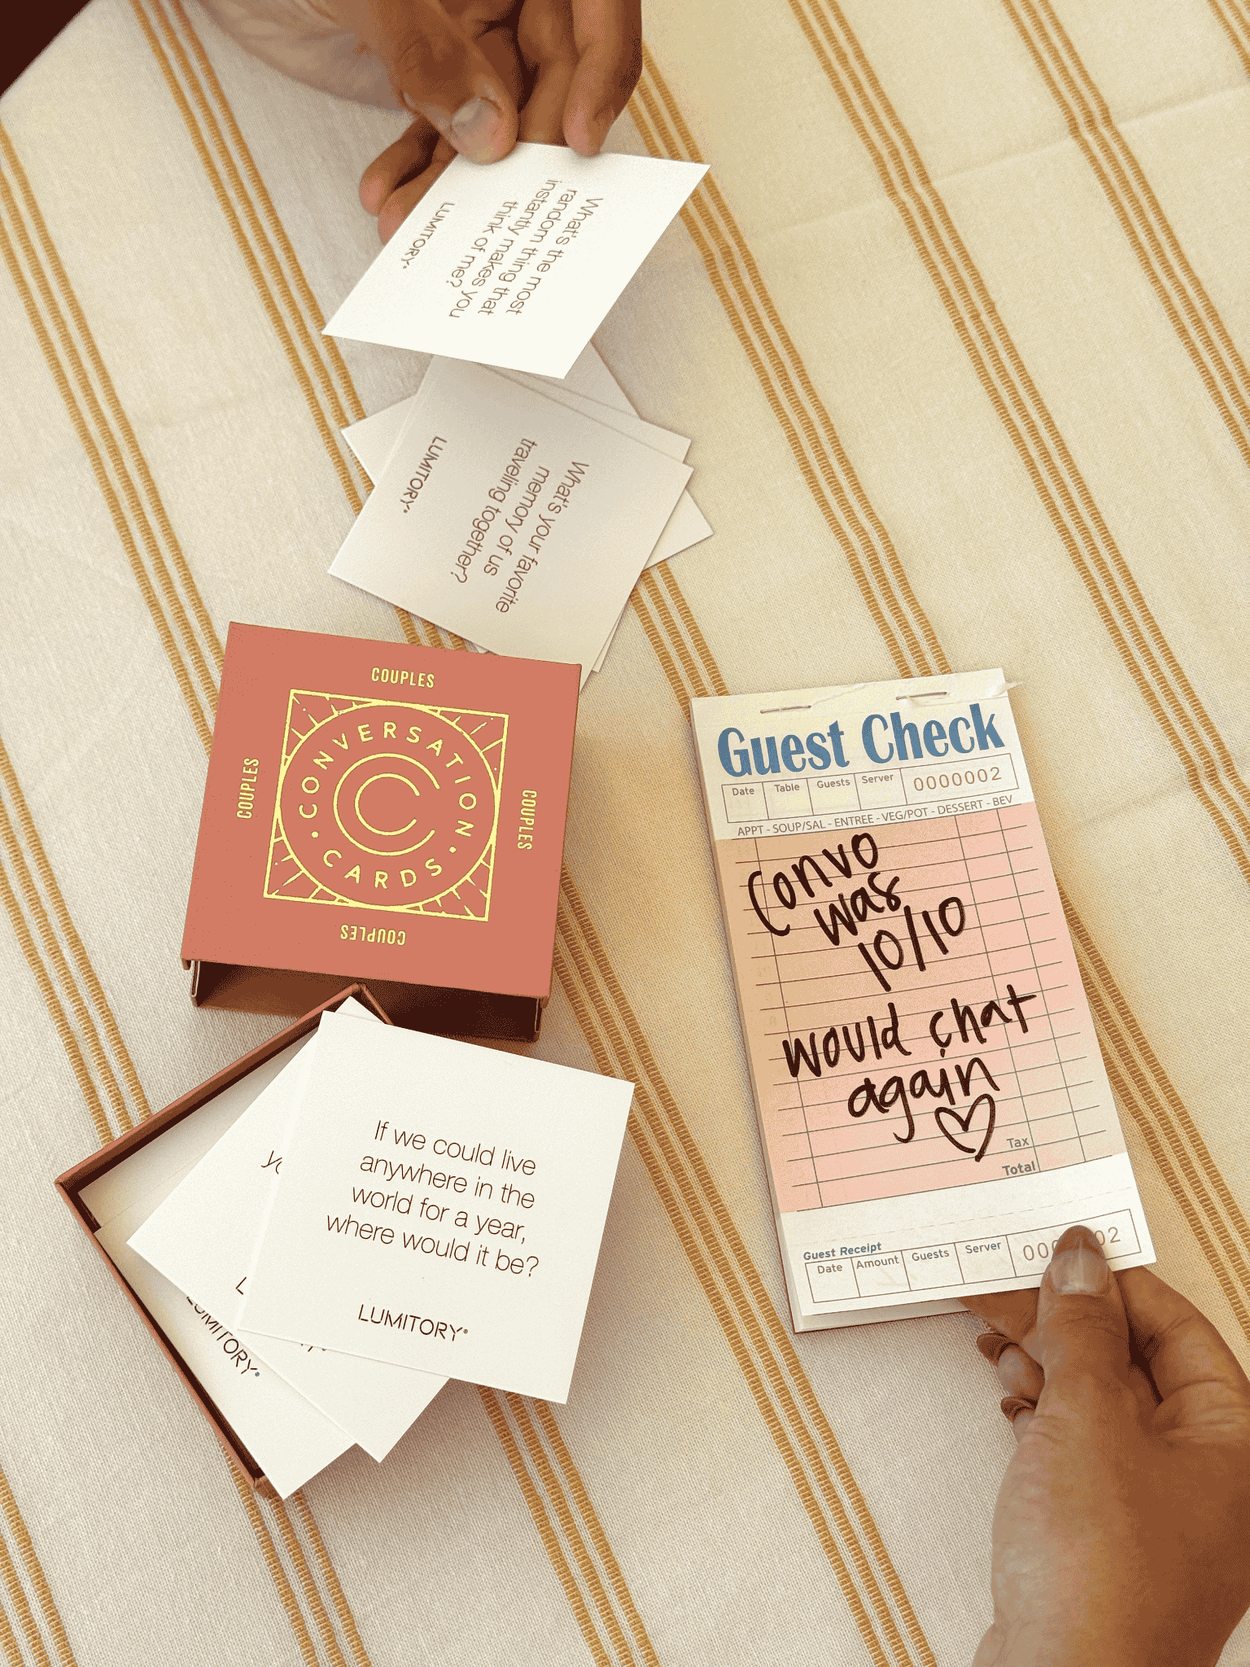 What's the most
random thing that
instantly makes you
think of me?
LUMITORY
What's your favorite
memory of us
traveling together?
LUMITORY
COUPLES
COUPLES
COUPLES
COUPLES
CONVERSATION
CARDS
C
If we could live
anywhere in the
world for a year,
where would it be?
LUMITORY
LUMITORY
Guest Check
Date Table Guests Server 0000002
APPT - SOUP/SAL - ENTREE - VEG/POT - DESSERT - BEV
Convo
was
10/10
would chat
again
Tax
Total
Guest Receipt
Date Amount Guests Server